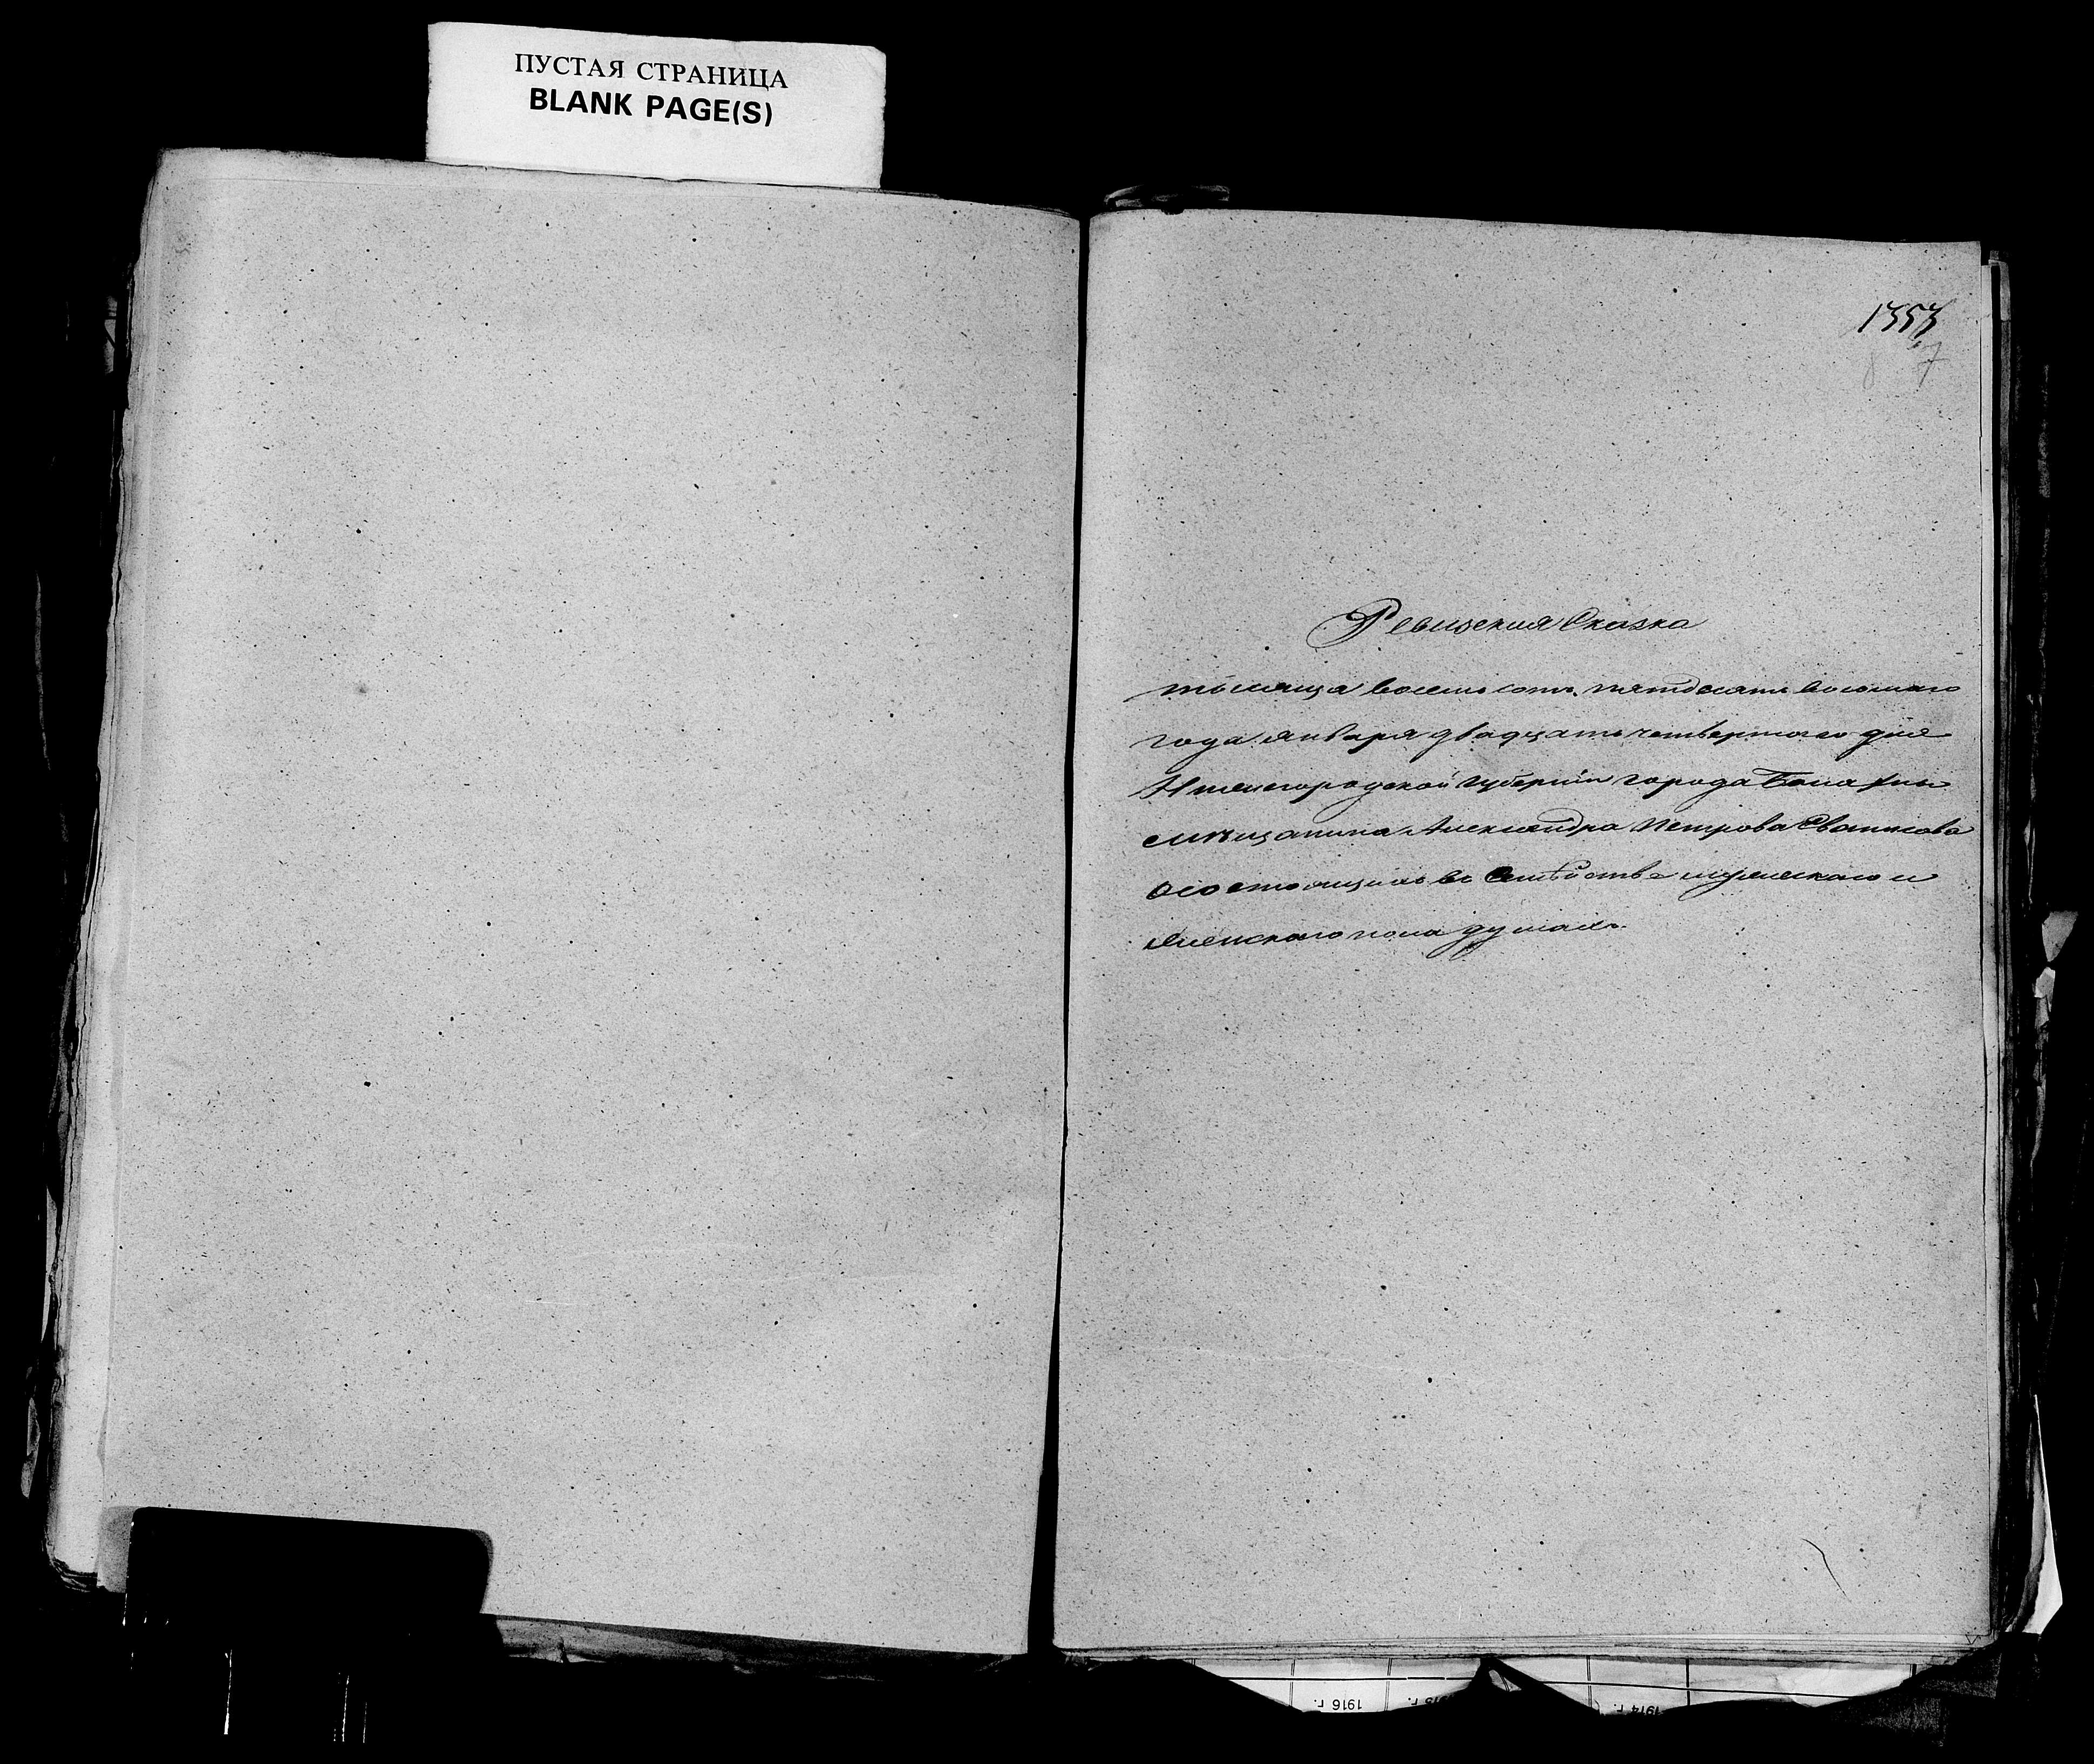 ПУСТАЯ СТРАНИЦА
BLANK PAGE(S)
1353
8 7
Ревизския Сказка
тысяща восемь сотъ пятдесятъ восмаго
года января двадцать четвертаго дня
Нижегородской губернiи города Балахны
мѣщанина Александра Петрова
о состоящихъ въ Семѣйстве мужескаго и
женскаго пола душахъ.
1916 г.
1915 г.
1914 г.